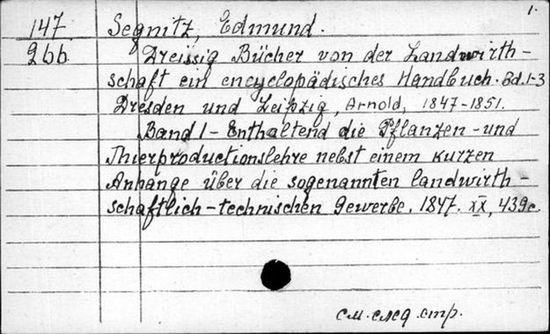 1.
147 Segnitz, Edmund.
266 Dreissig Bücher von der Landwirth-
schaft ein encyclopädisches Handbuch. Bd. 1-3
Dresden und Leipzig, Arnold, 1847-1851.
Band 1 - Enthaltend die Pflanzen- und
Thierproductionslehre nebst einem kurzen
Anhange über die sogenannten landwirth-
schaftlich-technischen Gewerbe. 1847. XX, 439c.
см. след. стр.